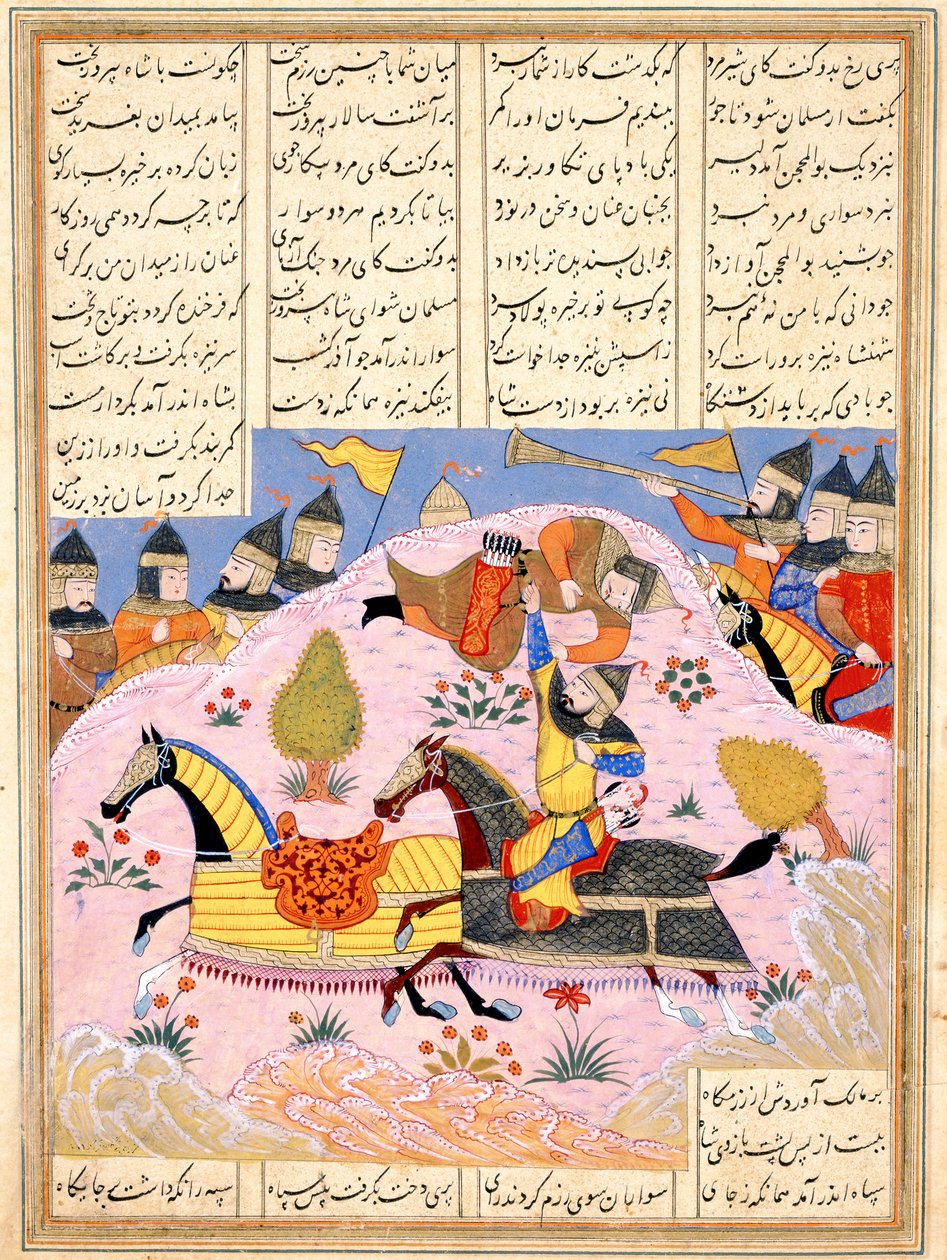 پری رخ بدو گفت کای شیر مرد که بگذشت کار از شمار نبرد میان شما با چنین رزم سخت چکونست با شاه پیروز بخت
بگفت ار مسلمان شود تاجور ببندیم فرمان او را کمر بر آشفت سالار پیروز بخت بیامد بمیدان بغرید سخت
بنزدیک بوالمحجن آمد دلیر یکی باد پای تکاور بزیر بدو گفت کای مرد پیکار جوی زبان کرده بر خیره بسیار گوی
سواری و مرد نبرد بجنبان عنان و سخن در نورد بیا تا بگردیم هر دو سوار که تا بر چه گردد همی روزگار
چو بشنید بوالمحجن آواز داد جوابی پسندیده تر باز داد بدو گفت کای مرد جنگ آزمای عنان را ز میدان من بر گرای
چو دانی که با من نهٔ هم نبرد چه کوبی تو بر خیره پولاد سرد مسلمان شو ای شاه پیروز بخت که فرخنده گردد بتو تاج و تخت
شهنشاه نیزه برو راست کرد ز اسپش بنیزه جدا خواست کرد سوار اندر آمد چو آذر گشسب سر نیزه بگرفت و برگاشت اسب
چو بادی که برباید از دشت کاه نی نیزه بربود از دست شاه بیفکند نیزه همانگه ز دست بشاه اندر آمد بکردار مست
کمربند بگرفت و او را ز زین
جدا کرد و آسان بزد بر زمین
بر مالک آوردش از رزمگاه
ببست از پس پشت بازوی شاه
سپاه اندر آمد همانگه ز جای سواران سوی رزم کردند رای پری دخت بگرفت پیش سپاه سپه را نگه داشت بر جایگاه